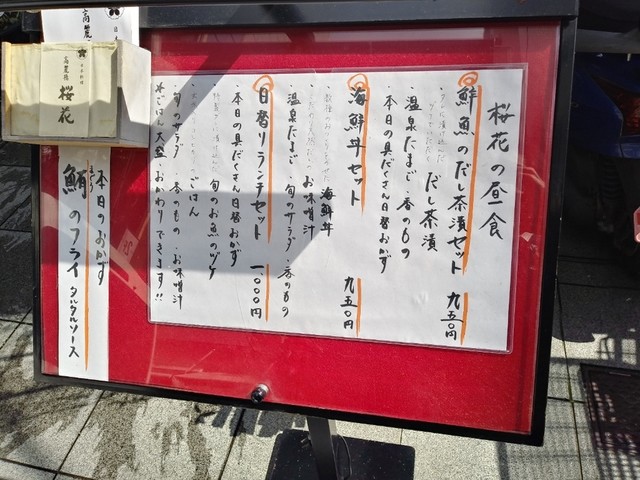 桜花の昼食
鮮魚のだし茶漬セット 九五〇円
だし茶漬
本日の具だくさん日替おかず
温泉たまご・香のもの
海鮮丼セット 九五〇円
海鮮丼
お味噌汁
温泉たまご 旬のサラダ・香のもの
日替りランチセット 一、〇〇〇円
本日の具だくさん日替おかず
旬のお魚のヅケ
ごはん
旬のサラダ・香のもの・お味噌汁
※ごはん大盛・おかわりできます!!
高麗橋
桜花
本日のおかず
鰤のフライ タルタルソース